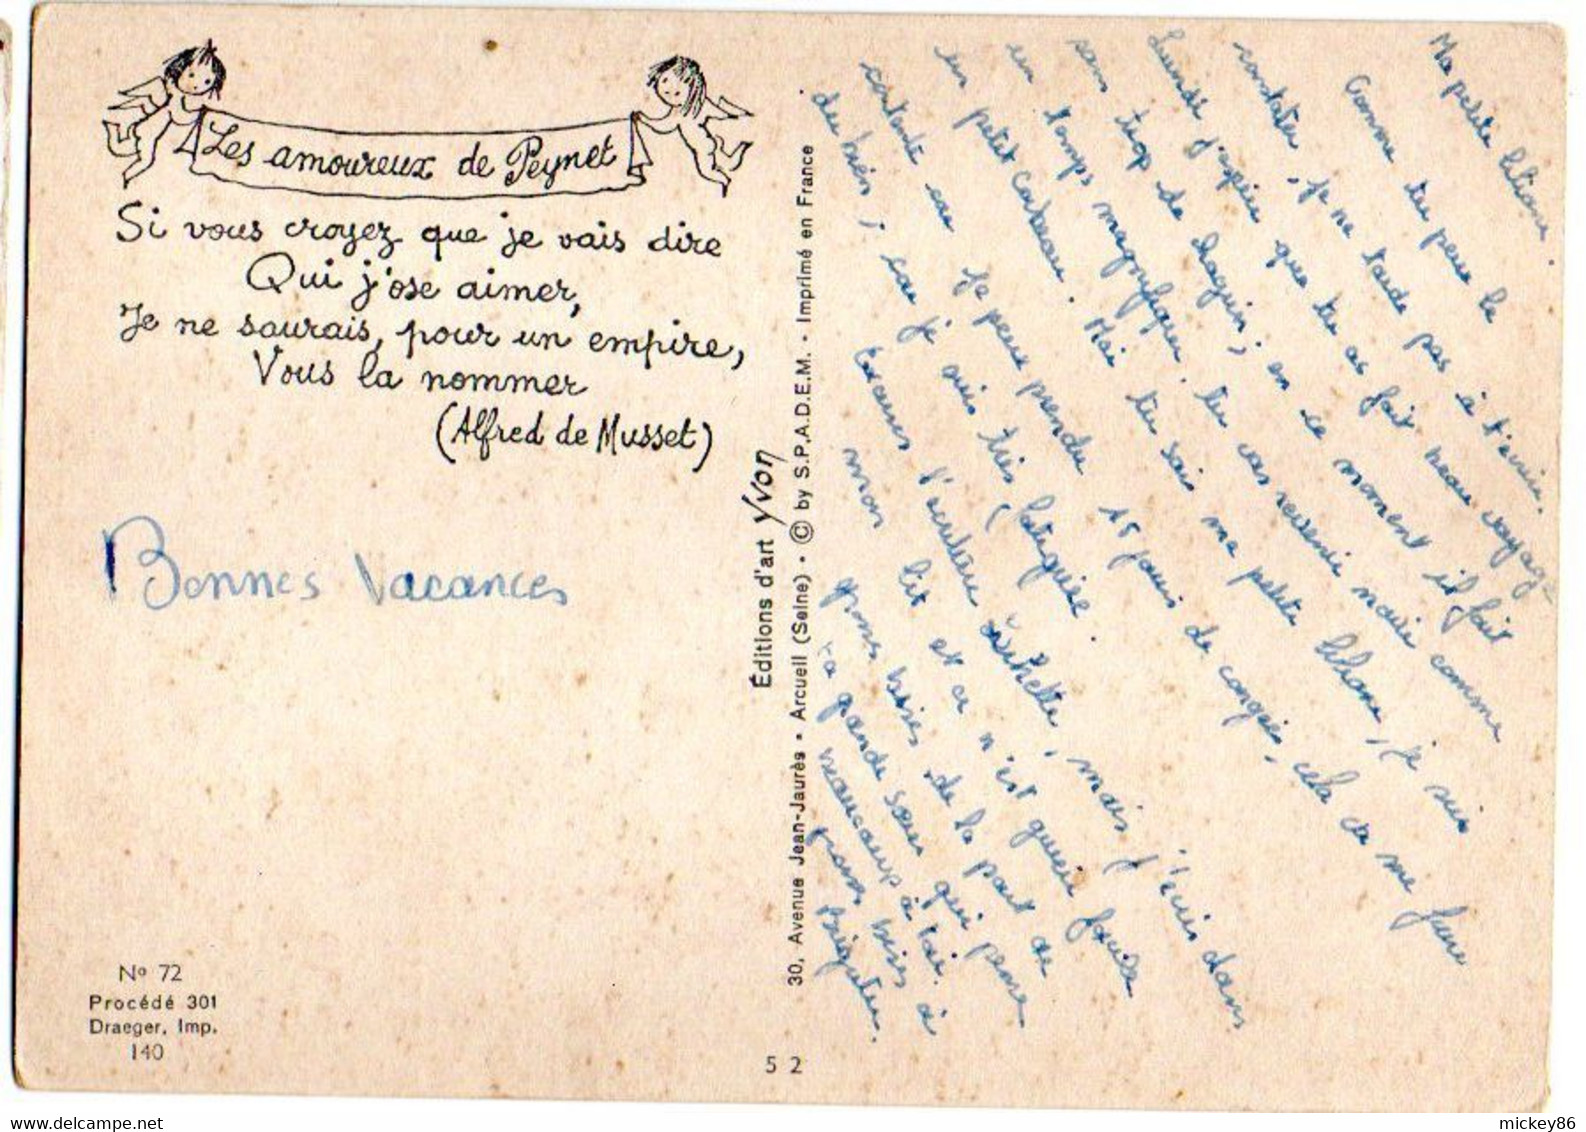 Les amoureux de Peynet
Si vous croyez que je vais dire
Qui j'ose aimer,
Je ne saurais, pour un empire,
Vous la nommer
(Alfred de Musset)
Bonnes Vacances
No 72
Procédé 301
Draeger, Imp.
140
Éditions d'art Yvon
30, Avenue Jean-Jaurès • Arcueil (Seine) • © by S.P.A.D.E.M. • Imprimé en France
5 2
Ma petite Liliane.
Comme tu peux le
constater, je ne tarde pas à t'écrire.
Lundi j'espère que tu as fait beau voyage
sans trop de chagrin; en ce moment il fait
un temps magnifique. tu vas revenir noire comme
un petit corbeau. Moi tu sais ma petite Liliane, je suis
contente car je peux prendre 15 jours de congés, cela va me faire
du bien; car je suis très fatiguée.
Excuses l'écriture Luchette, mais j'écris dans
mon lit et ce n'est guère facile
grosses bises de la part de
ta grande sœur qui pense
beaucoup à toi.
grosses bises à
Brigitte.
mickey86